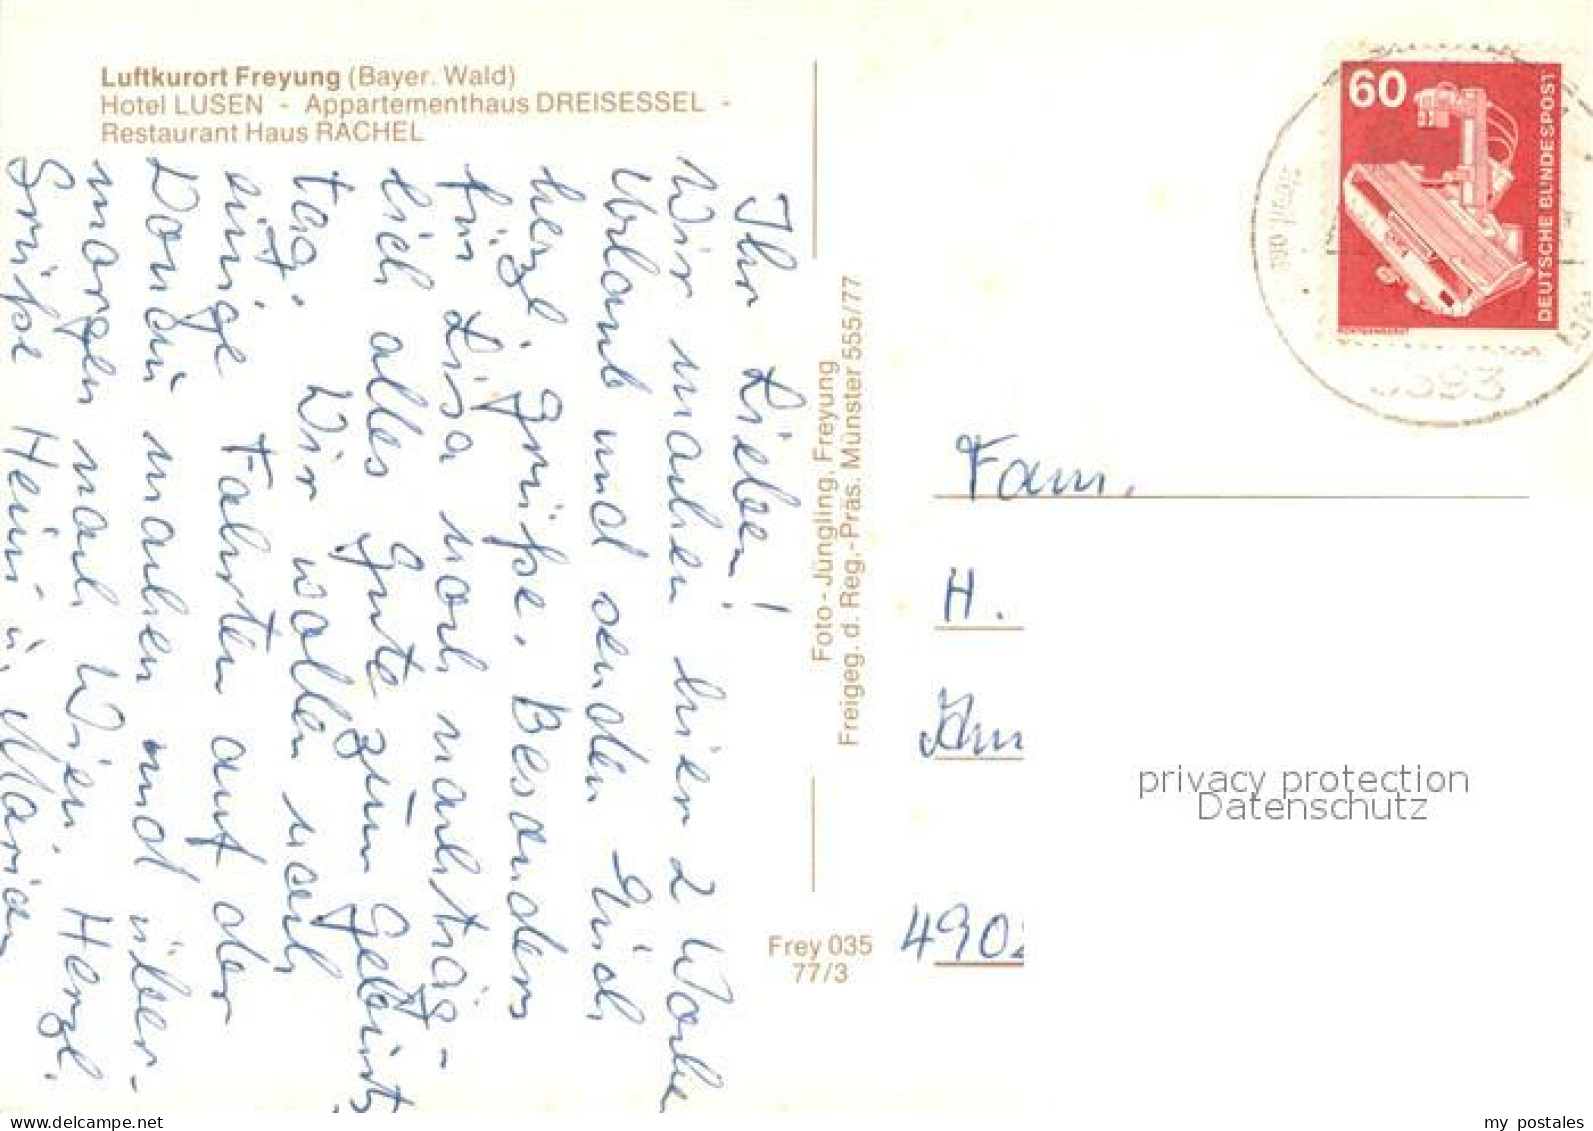 Luftkurort Freyung (Bayer. Wald)
Hotel LUSEN - Appartementhaus DREISESSEL -
Restaurant Haus RACHEL
Ihr Lieben!
Wir machen hier 2 Woche
Urlaub und senden Euch
herzl. Grüße. Besonders
für Lisa noch nachträg-
lich alles Gute zum Geburts
tag. Wir wollen noch
einige Fahrten auf der
Donau machen und über-
morgen nach Wien. Herzl.
Grüße Heini u. Marian
Foto-Jüngling, Freyung
Freigeg. d. Reg.-Präs. Münster 555/77
Frey 035
77/3
60
DEUTSCHE BUNDESPOST
RÖNTGENGERÄT
8393
Fam.
H.
4902
privacy protection
Datenschutz
delcampe.net
my_postales